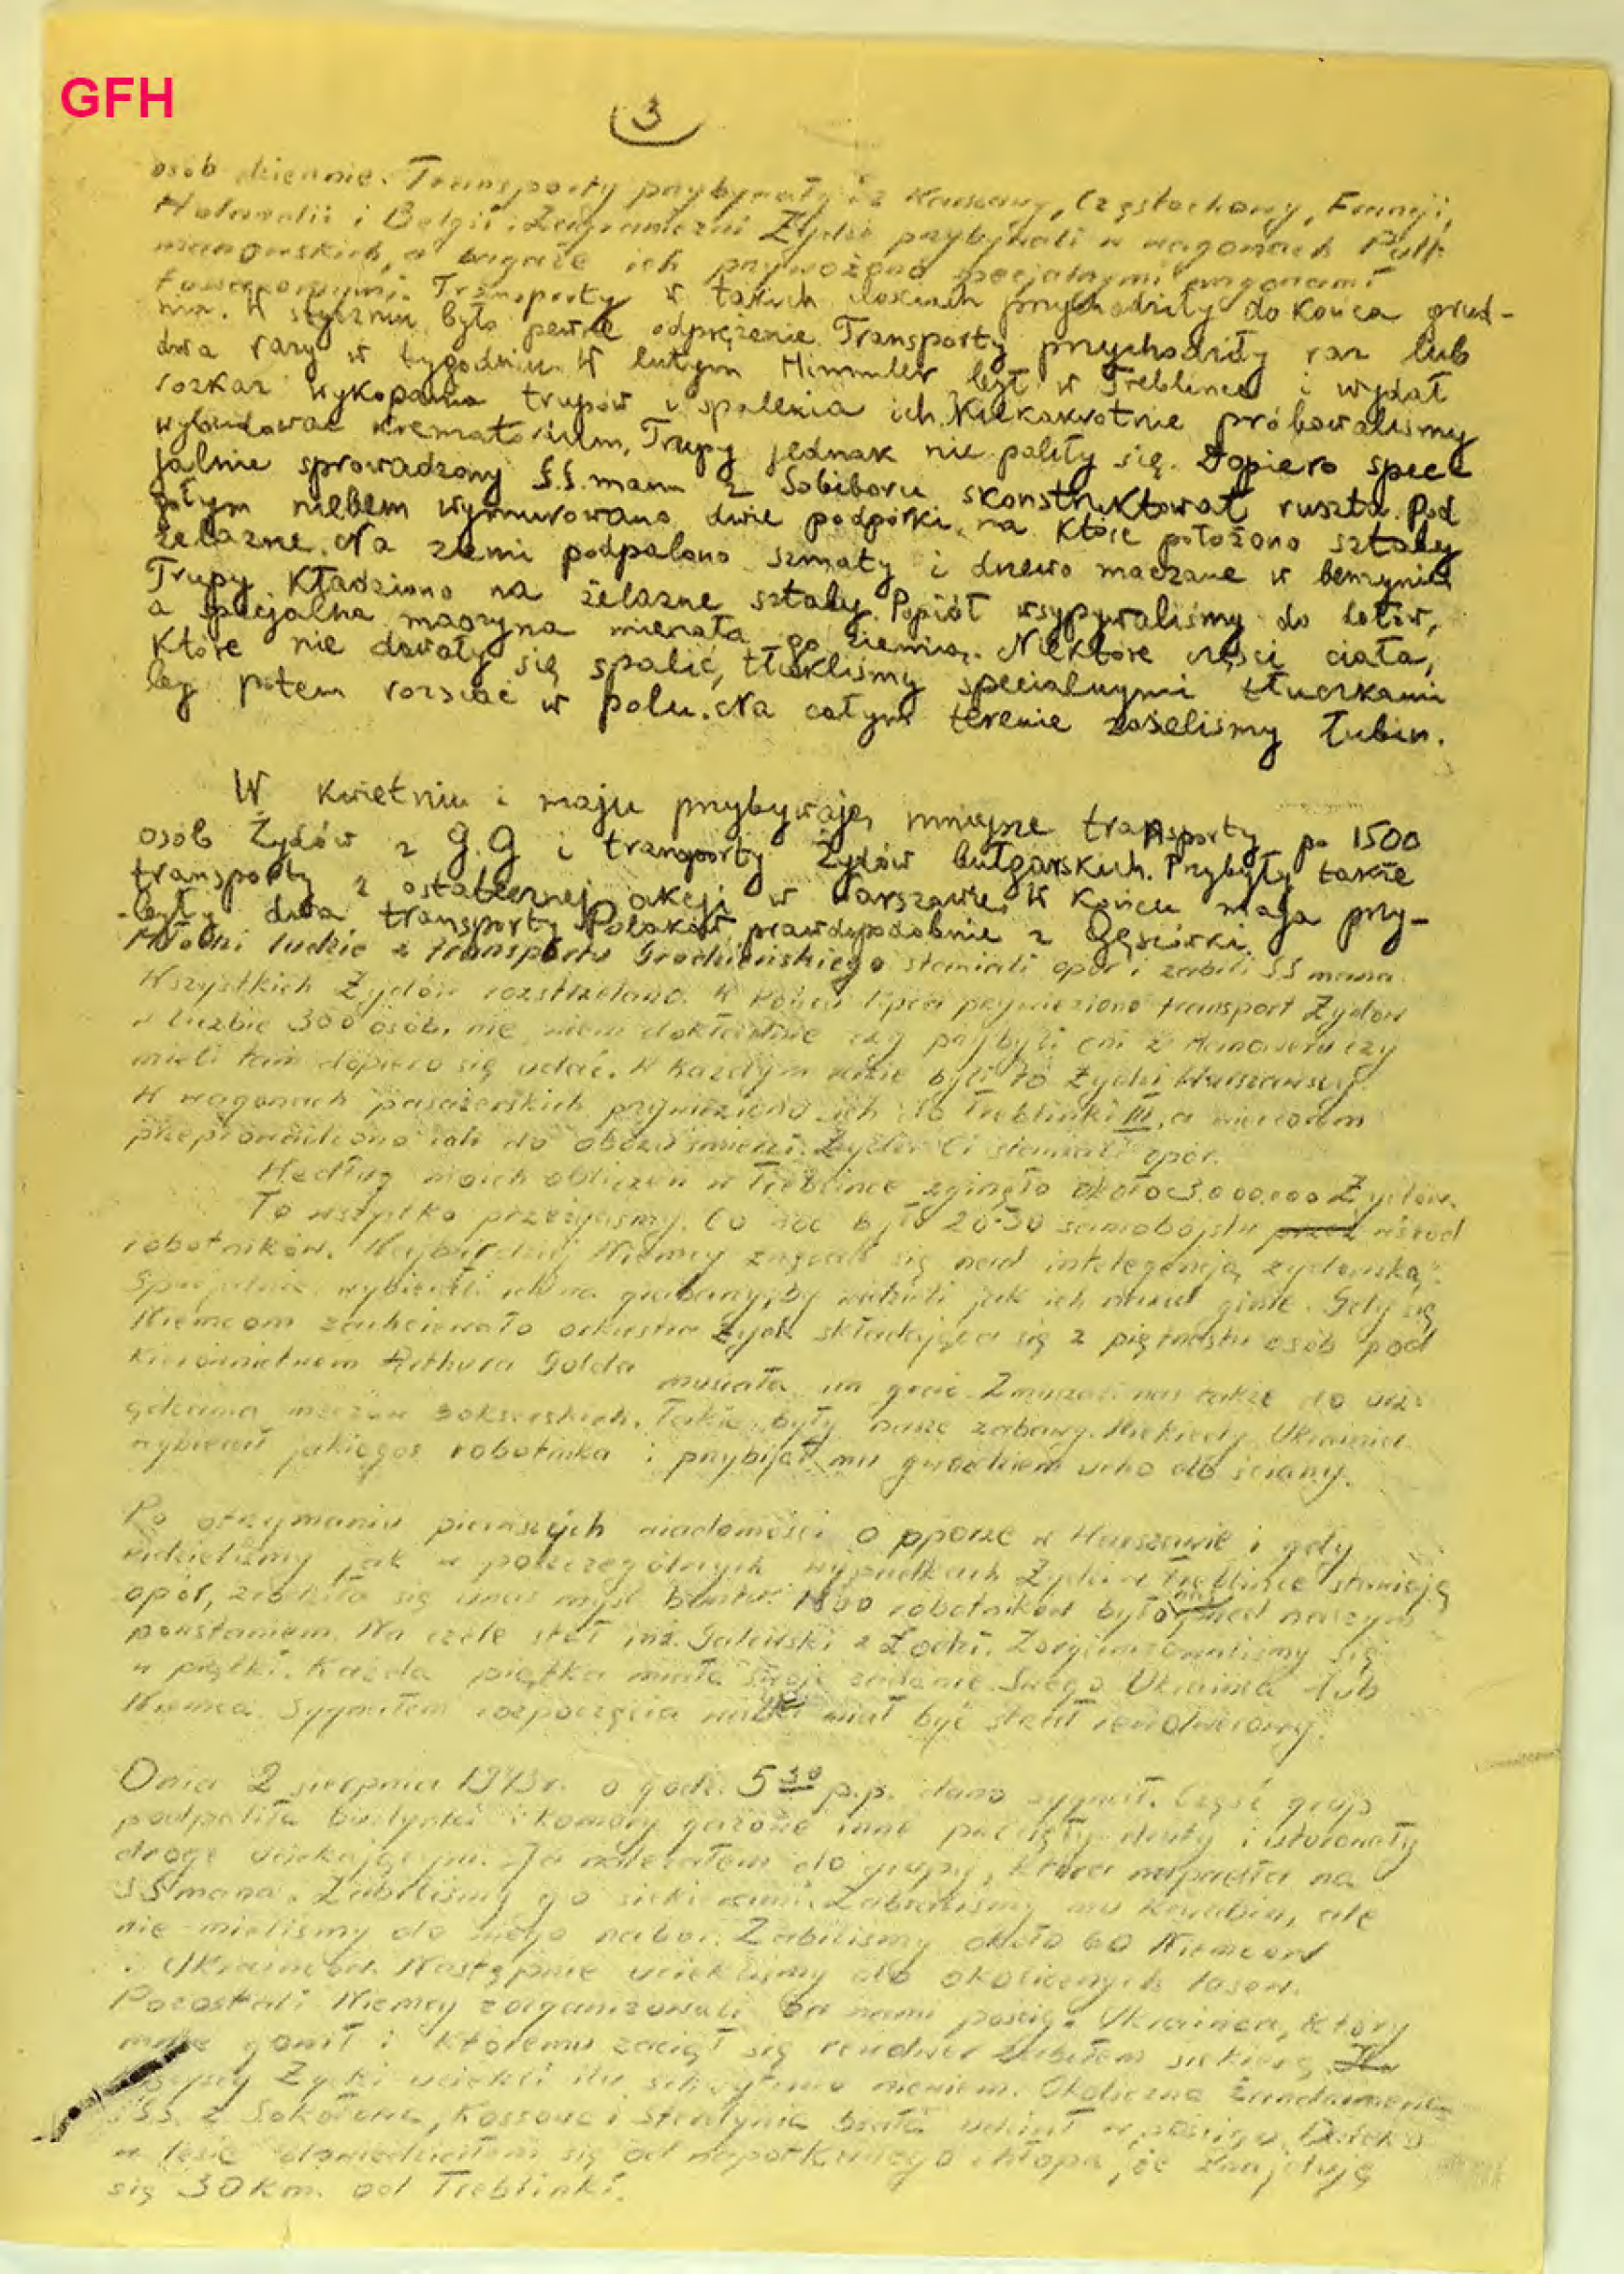 GFH
3
osób dziennie. Transporty przybywały z Warszawy, Częstochowy, Francji,
Holandii i Belgii. Zagraniczni Żydzi przybywali w wagonach Pull-
manowskich, a bagaże ich przywożono specjalnymi wagonami
towarowymi. Transporty w takich ilościach przychodziły do końca grud-
nia. W styczniu było pewne odprężenie. Transporty przychodziły raz lub
dwa razy w tygodniu. W lutym Himmler był w Treblince i wydał
rozkaz wykopania trupów i spalenia ich. Kilkakrotnie próbowaliśmy
wybudować krematorium. Trupy jednak nie paliły się. Dopiero specz
jalnie sprowadzony S.S. mann z Sobiboru skonstruktował ruszta. Pod
gołym niebem wymurowano dwie podpórki na które położono sztaby
żelazne. Na ziemi podpalono szmaty i drzewo maczane w benzynie
Trupy kładziono na żelazne sztaby. Popiół wsypywaliśmy do dołów,
a specjalna maszyna mieszała go z ziemią. Niektóre części ciała,
które nie dawały się spalić, tłukliśmy specialnymi tłuczkami
by potem rozsiać w polu. Na całym terenie zasieliśmy łubin.
W kwietniu i maju przybywają mniejsze transporty po 1500
osób Żydów z G.G i transporty Żydów bułgarskich. Przybyły także
transporty z ostatecznej akcji w Warszawie. W końcu maja przy-
-były dwa transporty Polaków prawdopodobnie z Gęsiówki.
Młodzi ludzie z transportu Grodzieńskiego stawiali opór i zabili SS mana.
Wszystkich Żydów rozstrzelano. W końcu lipca przywieziono transport Żydów
w liczbie 300 osób, nie wiem dokładnie czy przybyli oni z Hanoweru czy
mieli tam dopiero się udać. W każdym razie byli to Żydzi Warszawscy.
W wagonach pasażerskich przywieziono ich do Treblinki III, a wieczorem
przeprowadzono ich do obozu śmierci. Żydzi Ci stawiali opór.
Według moich obliczeń w Treblince zginęło około 3.000.000 Żydów.
To wszystko przeżyliśmy. Co noc było 20-30 samobójstw przez wśród
robotników. Najbardziej Niemcy znęcali się nad inteligencją żydowską.
Specjalnie wybierali ich na grabarzy, by widzieli jak ich naród ginie. Gdy się
Niemcom zachciewało orkiestra żyd. składająca się z piętnastu osób pod
kierownictwem Arthura Golda musiała im grać. Zmuszali nas także do urzą
dzania meczów bokserskich. Takie były nasze zabawy. Niekiedy Ukrainiec
wybierał jakiegoś robotnika i przybijał mu gwoździem ucho do ściany.
Po otrzymaniu pierwszych wiadomości o oporze w Warszawie i gdy
widzieliśmy jak w poszczególnych wypadkach Żydzi w Treblince stawiają
opór, zrodziła się u nas myśl buntu. robotników było nas przed naszym
powstaniem. Na czele stał inż. Galewski z Łodzi. Zorganizowaliśmy się
w piątki. Każda piątka miała swoje zadanie. Swego Ukraińca lub
Niemca. Sygnałem rozpoczęcia walki miał być strzał rewolwerowy.
Dnia 2 sierpnia 1943 r. o godz. 5 30 p.p. dano sygnał. Część grup
podpaliła budynki i komory gazowe inne przecięły druty i utorowały
drogę uciekającym. Ja należałem do grupy, która napadła na
SSmana. Zabiliśmy go siekierami. Zabraliśmy mu karabin, ale
nie mieliśmy do niego naboi. Zabiliśmy około 60 Niemców
i Ukraińców. Następnie uciekliśmy do okolicznych lasów.
Pozostali Niemcy zorganizowali za nami pościg. Ukraińca, który
mnie gonił i któremu zaciął się rewolwer zabiłem siekierą.
Żydzi uciekli ilu schwytano nie wiem. Okoliczna żandarmeria
i SS. z Sokołowa, Kossowa i Sterdynia brała udział w pościgu. Daleko
w lesie dowiedziałem się od napotkanego chłopa, że znajduję
się 30 km. od Treblinki.